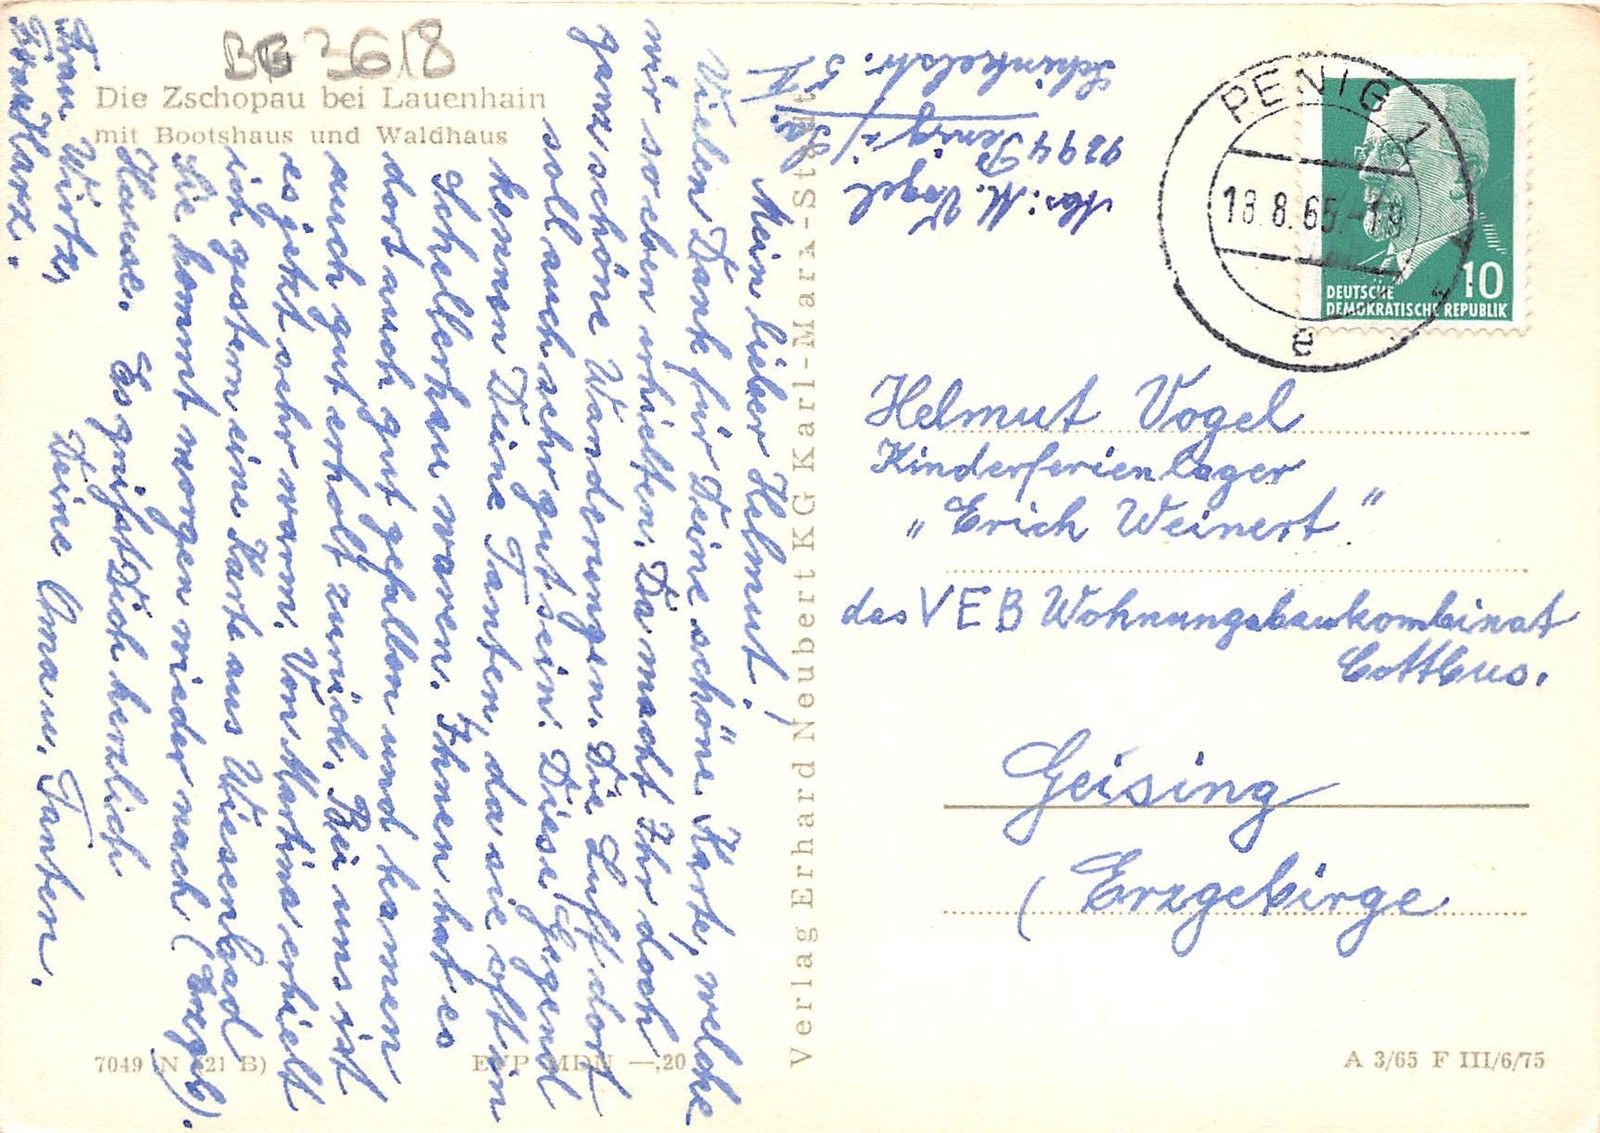 BG 3618
Die Zschopau bei Lauenhain
mit Bootshaus und Waldhaus
Mein lieber Helmut!
Vielen Dank für Deine schöne Karte, welche
wir soeben erhielten. Da macht Ihr doch
ganz schöne Wanderungen. Die Luft dort
soll auch sehr gut sein. Diese Gegend
kennen Deine Tanten, da sie oft in
Schellerhau waren. Ihnen hat es
dort auch gut gefallen und kamen
auch gut erholt zurück. Bei uns ist
es jetzt sehr warm. Von Martina erhielt
ich gestern eine Karte aus Wiesenbad
Sie kommt morgen wieder nach (Erzgeb).
Hause. Es grüßt Dich herzlich
Deine Oma u. Tanten.
Frau Wirte,
Frau Harz.
Abs: M. Vogel
9294 Penig i/Sa.
Schinkelstr. 5
Verlag Erhard Neubert KG Karl-Marx-Stadt
PENIG 1
18.8.65.-19
a
DEUTSCHE
DEMOKRATISCHE REPUBLIK
10
Helmut Vogel
Kinderferienlager
„Erich Weinert"
des VEB Wohnungsbaukombinat
Cottbus.
Geising
(Erzgebirge
7049 N (21 B)
EVP MDN —,20
A 3/65 F III/6/75